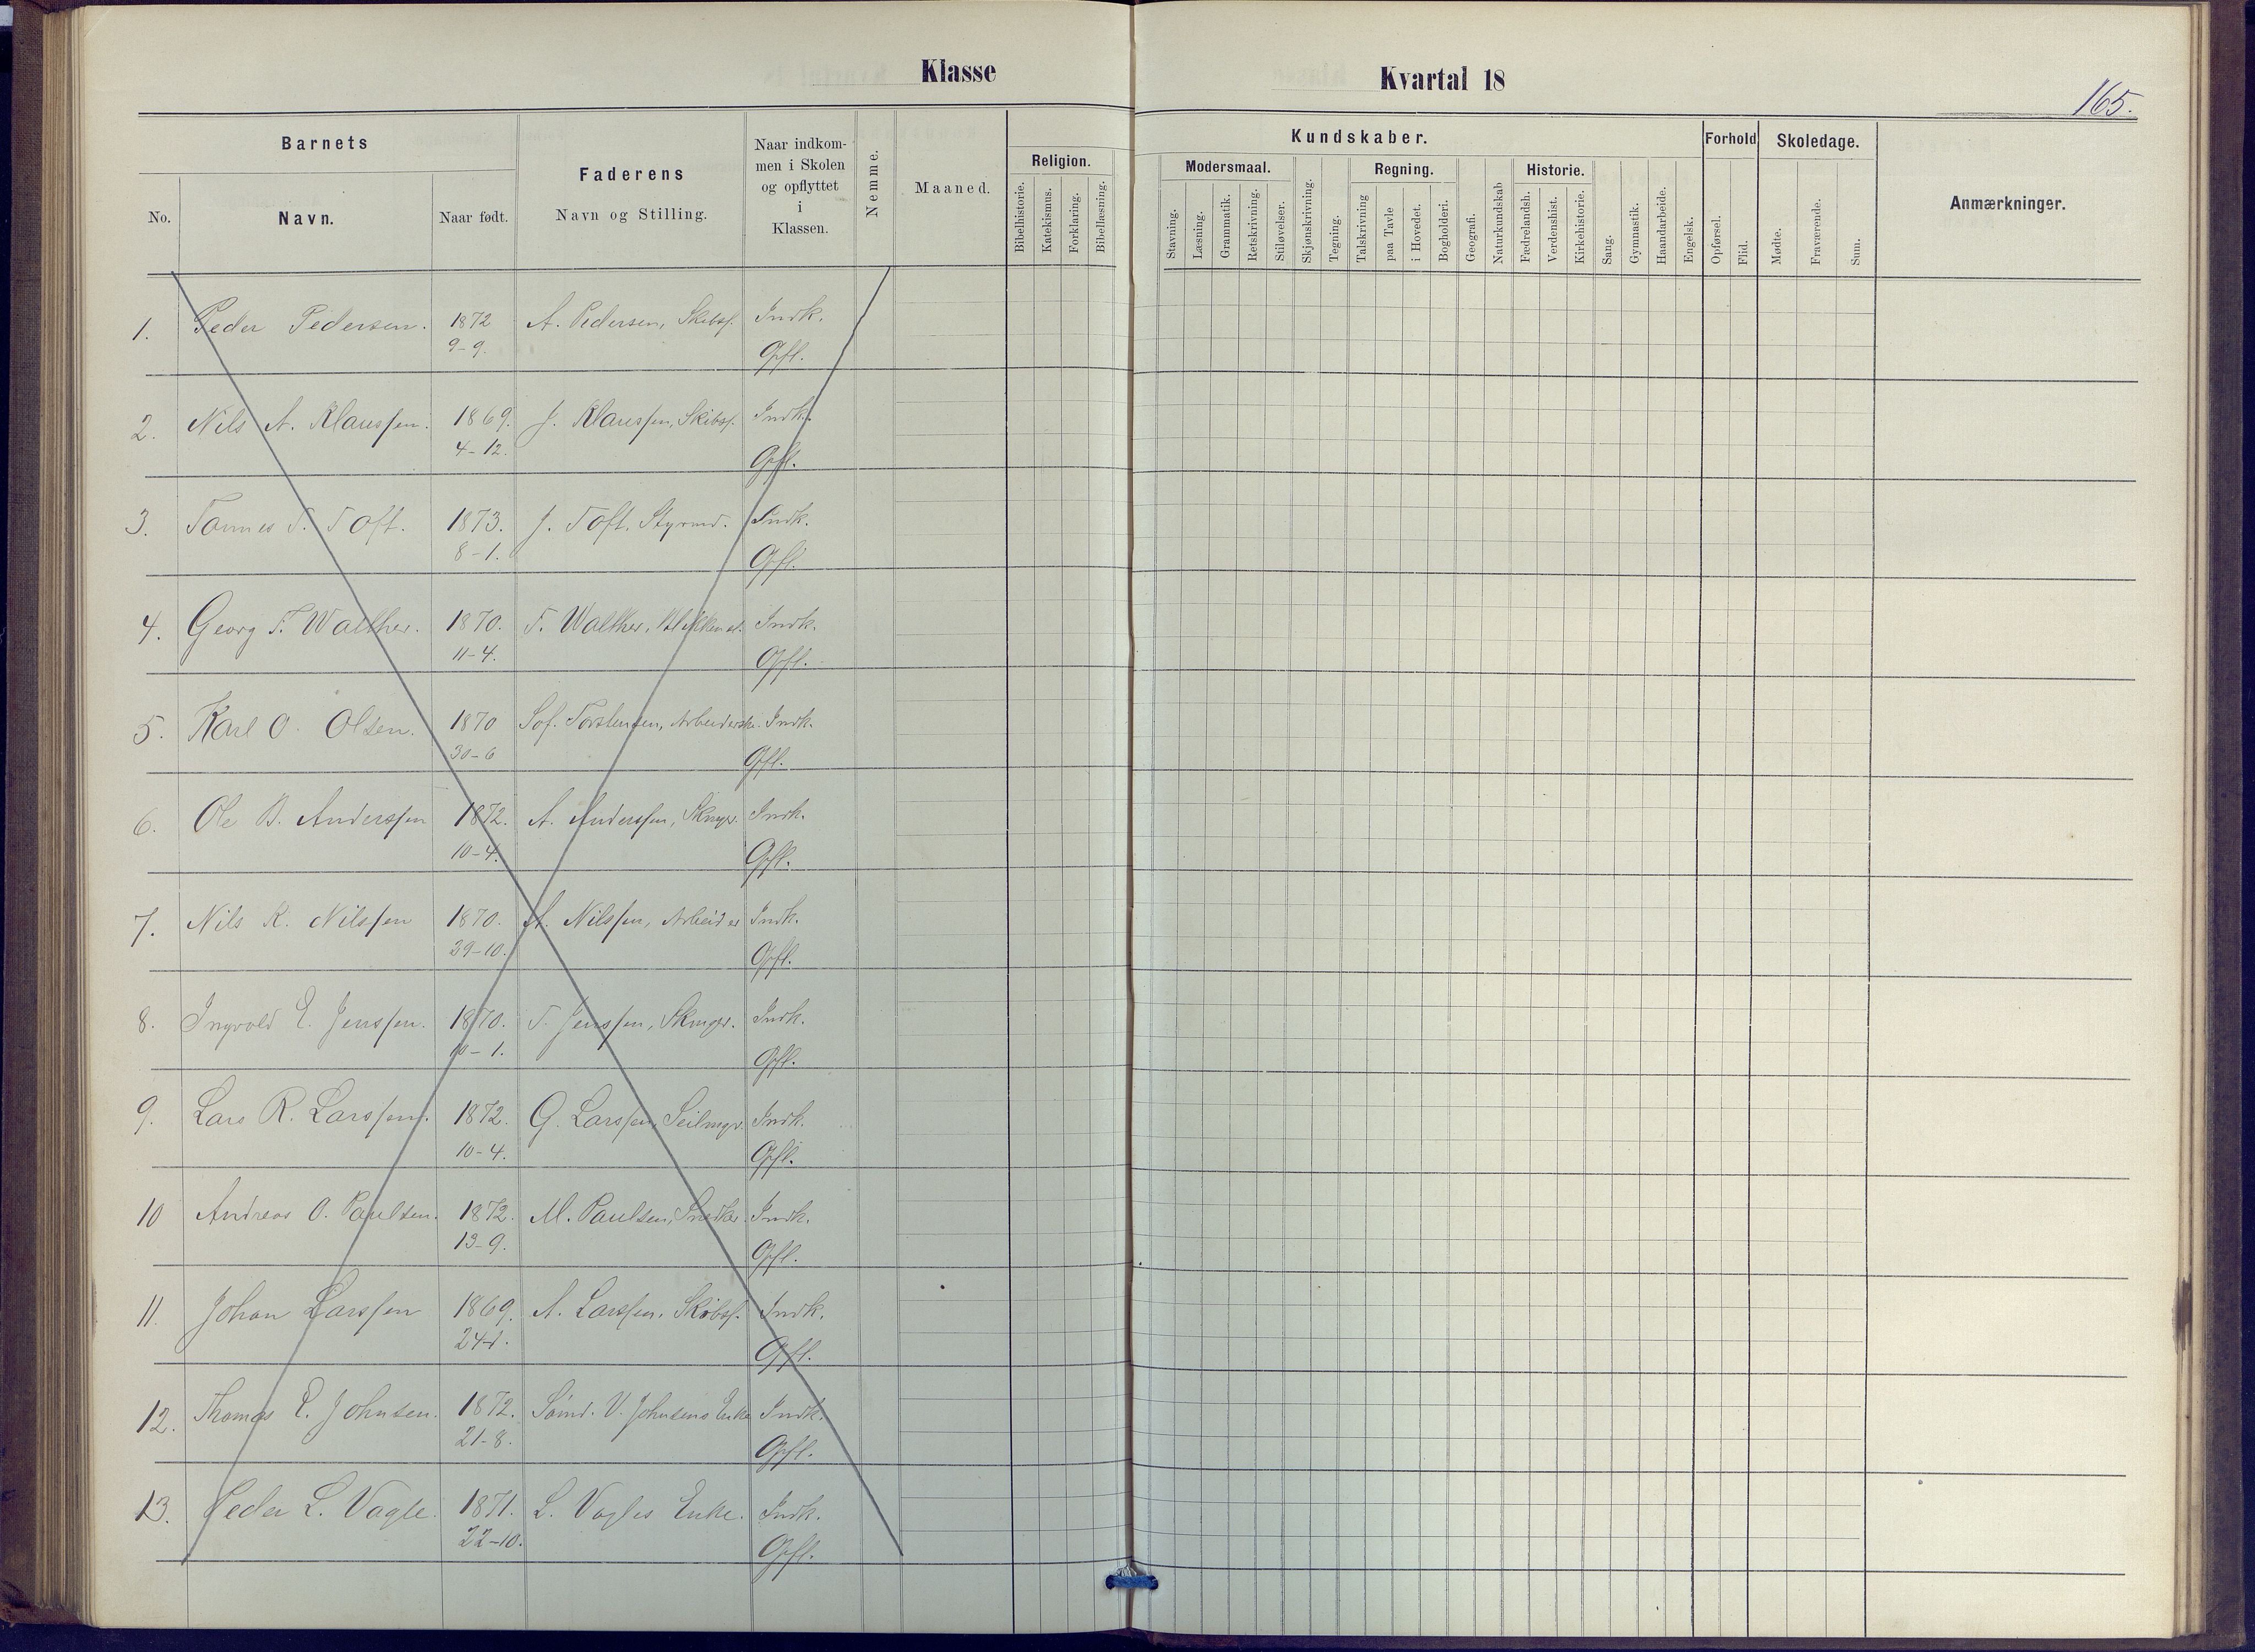 Klasse
Kvartal 18
165.
Barnets
No.
Navn.
Naar født.
Faderens
Navn og Stilling.
Naar indkom-
men i Skolen
og opflyttet
i
Klassen.
Nemme.
Maaned.
Religion.
Bibelhistorie.
Katekismus.
Forklaring.
Bibellæsning.
Kundskaber.
Modersmaal.
Stavning.
Læsning.
Grammatik.
Retskrivning.
Stiløvelser.
Skjønskrivning.
Tegning.
Regning.
Talskrivning
paa Tavle
i Hovedet.
Bogholderi.
Geografi.
Naturkundskab
Historie.
Fædrelandsh.
Verdenshist.
Kirkehistorie.
Sang.
Gymnastik.
Haandarbeide.
Engelsk.
Forhold
Opførsel.
Flid.
Skoledage.
Mødte.
Fraværende.
Sum.
Anmærkninger.
1. Peder Pedersen. 1872 A. Pedersen, Skibsf. Indk.
9-9. Opfl.
2. Nils A. Klaussen. 1869. J. Klaussen, Skibsf. Indk.
4-12. Opfl.
3. Tannes T. Toft. 1873. J. Toft, Styrmd. Indk.
8-1. Opfl.
4. Georg F. Walther. 1870. F. Walther, Indk.
11-4. Opfl.
5. Karl O. Olsen. 1870 Sof. Torstensen, Arbeiderske. Indk.
30-6 Opfl.
6. Ole B. Anderssen 1872. A. Anderssen, Skmgr. Indk.
10-4. Opfl.
7. Nils K. Nilssen 1870. A. Nilssen, Arbeider Indk.
29-10. Opfl.
8. Ingvald E. Jenssen. 1870. T. Jenssen, Skmgr. Indk.
10-1. Opfl.
9. Lars R. Larssen. 1872. G. Larssen, Seilmgr. Indk.
10-4. Opfl.
10 Andreas O. Paulsen. 1872. M. Paulsen, Snedker. Indk.
13-9. Opfl.
11. Johan Larssen 1869. A. Larssen, Skibsf. Indk.
24-1. Opfl.
12. Thomas E. Johnsen. 1872. Sømd. V. Johnsens Enke Indk.
21-8. Opfl.
13. Peder L. Vagle. 1871. L. Vagles Enke. Indk.
22-10. Opfl.